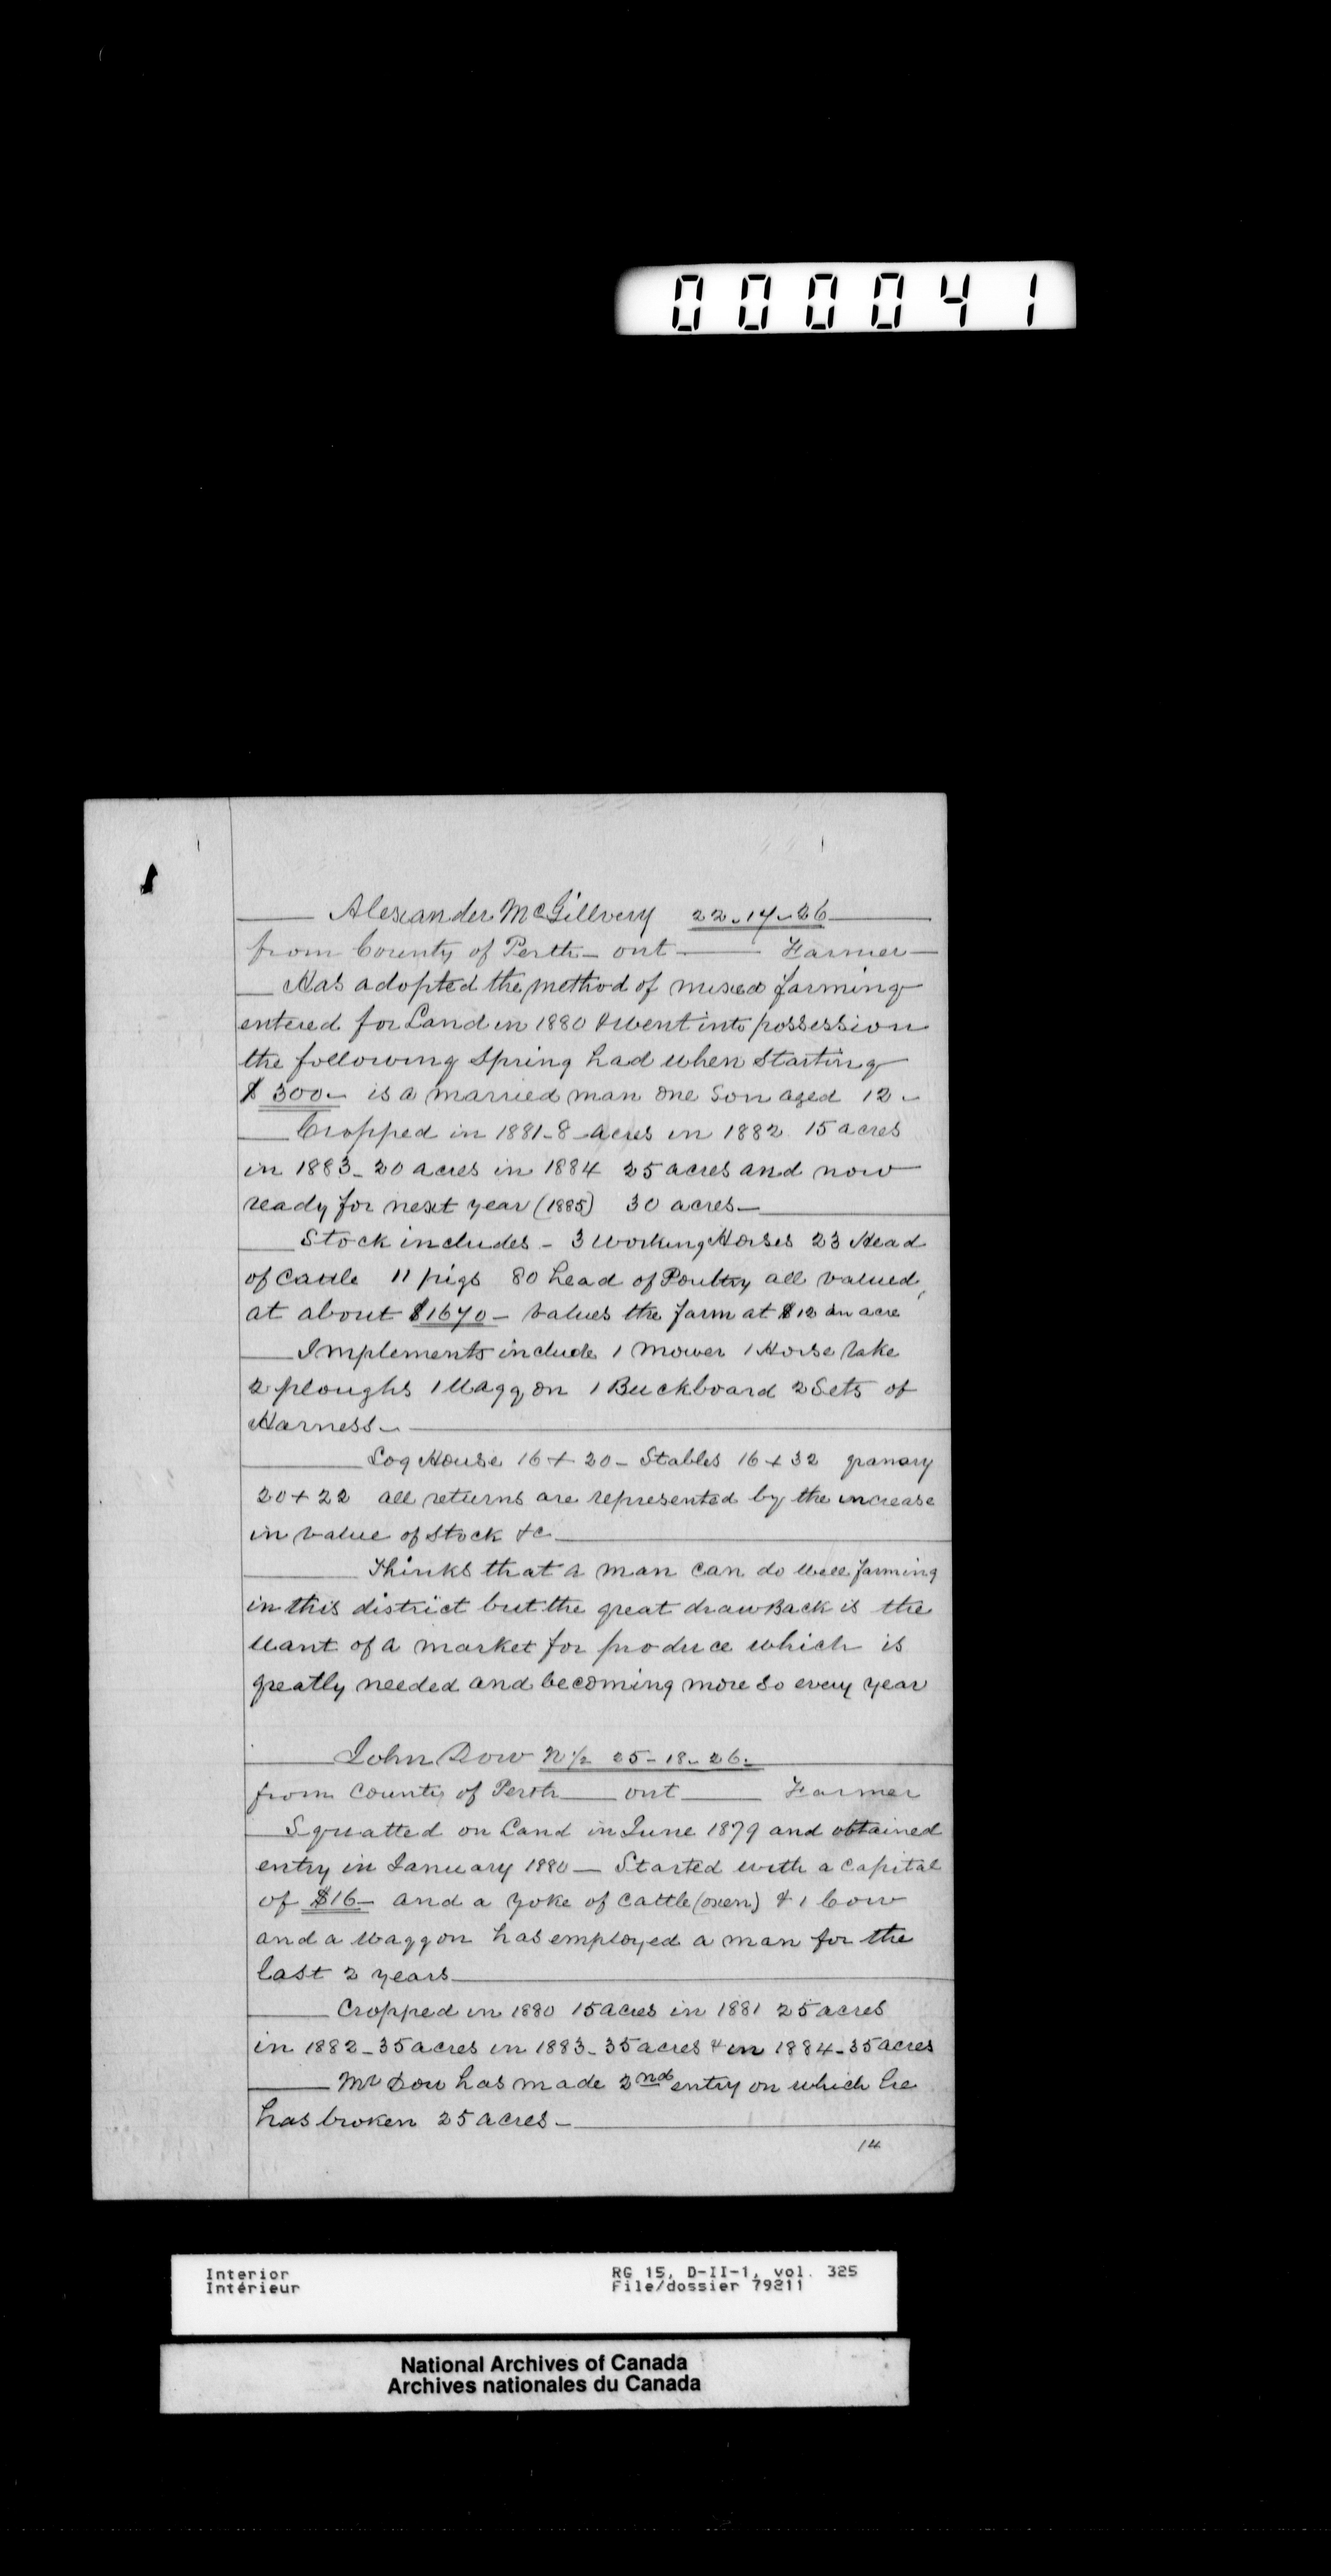 000041
Alexander McGillvery 22-17-26
from County of Perth - ont - Farmer -
Has adopted the method of mixed farming
entered for Land in 1880 & went into possession
the following Spring had when Starting
$300- is a married man one Son aged 12-
Cropped in 1881-8-acres in 1882 15 acres
in 1883-20 acres in 1884 25 acres and now
ready for next year (1885) 30 acres-
Stock includes - 3 working Horses 23 Head
of Cattle 11 pigs 80 head of Poultry all valued,
at about $1670- values the farm at $12 an acre
Implements include 1 Mower 1 Horse Rake
2 ploughs 1 Waggon 1 Buckboard 2 Sets of
Harness-
Log House 16 + 20 - Stables 16 + 32 granary
20 + 22 all returns are represented by the increase
in value of Stock &c
Thinks that a man can do well farming
in this district but the great drawBack is the
want of a market for produce which is
greatly needed and becoming more so every year
John Dow N 1/2 25-18-26-
from County of Perth ont Farmer
Squatted on Land in June 1879 and obtained
entry in January 1880 - Started with a Capital
of $16- and a Yoke of Cattle (oxen) & 1 Cow
and a Waggon has employed a man for the
last 2 years
Cropped in 1880 15 acres in 1881 25 acres
in 1882-35 acres in 1883-35 acres & in 1884-35 acres
Mr Dow has made 2nd entry on which he
has broken 25 acres-
14
Interior RG 15, D-II-1, vol. 325
Intérieur File/dossier 79211
National Archives of Canada
Archives nationales du Canada